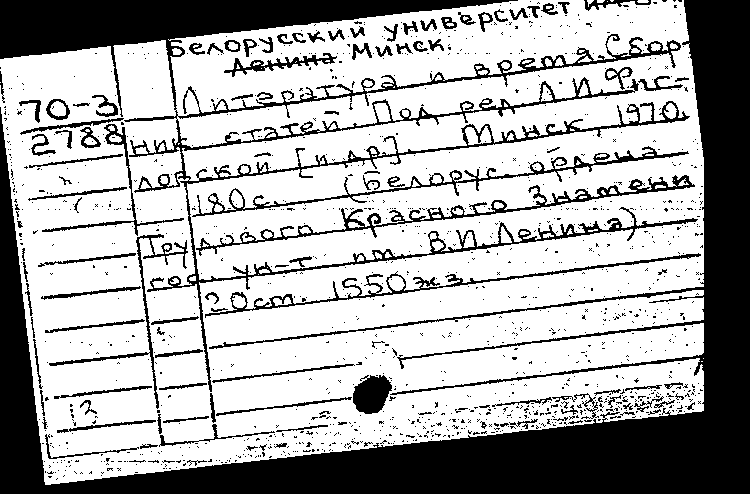 Белорусский университет им.
Ленина. Минск.
70-3
2788
Литература и время. Сбор-
ник статей. Под ред. Л.И. Фиг-
ловской [и др.]. Минск, 1970.
180с. (Белорус. ордена
Трудового Красного Знамени
гос. ун-т им. В.И. Ленина).
20ст. 1550 экз.
13